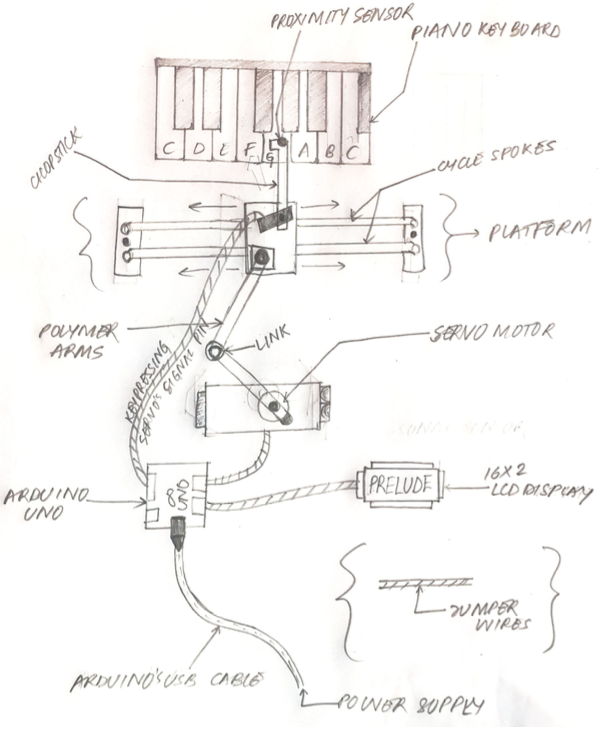 PROXIMITY SENSOR
PIANO KEYBOARD
C D E F G A B C
CHOPSTICK
CYCLE SPOKES
PLATFORM
POLYMER
ARMS
KEYPRESSING
SERVO'S SIGNAL PIN
LINK
SERVO MOTOR
ARDUINO
UNO
UNO
PRELUDE
16X2
LCD DISPLAY
JUMPER
WIRES
ARDUINO'S USB CABLE
POWER SUPPLY